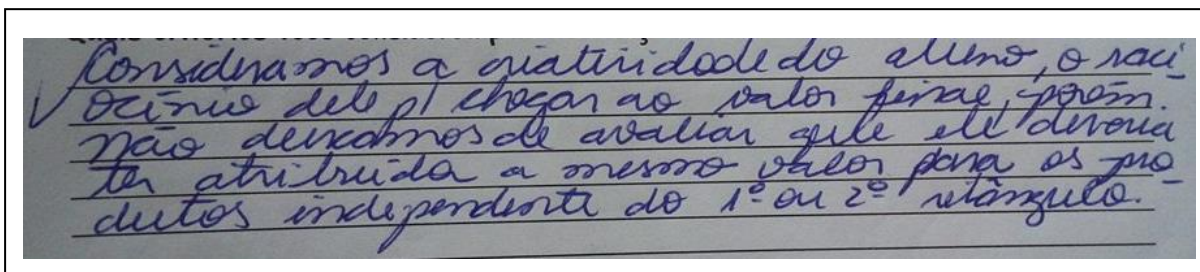 Consideramos a criatividade do aluno, o raci_
ocínio dele p/ chegar ao valor final, porém.
não deixamos de avaliar que ele deveria
ter atribuida a mesmo valor para os pro_
dutos independente do 1º ou 2º retângulo.